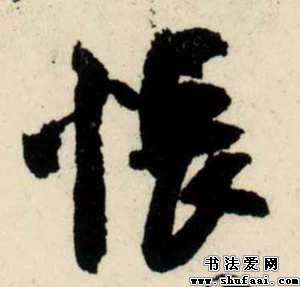 悵
书法爱网
www.shufaai.com